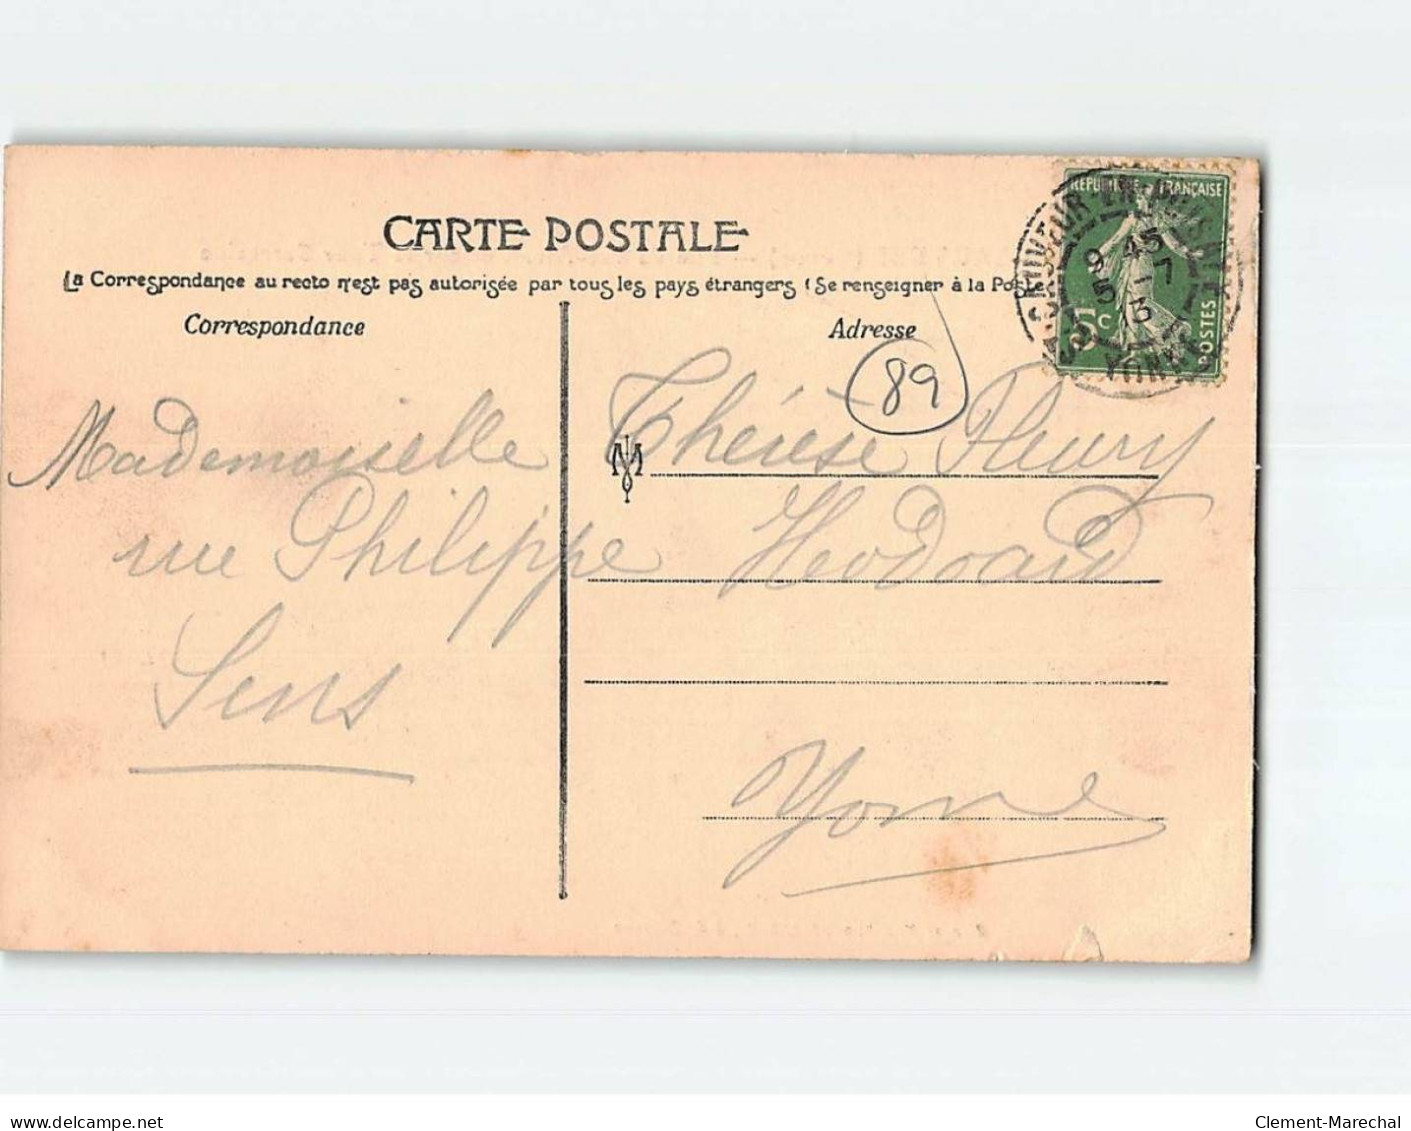 CARTE POSTALE
La Correspondance au recto n'est pas autorisée par tous les pays étrangers (Se renseigner à la Poste
Correspondance
Adresse
89
RÉPUBLIQUE FRANÇAISE
9 45
5 - 7
13
5c
POSTES
YONNE
M
Mademoiselle Thérèse Fleury
rue Philippe Heodoard
Sens
Yonne
delcampe.net
Clement-Marechal